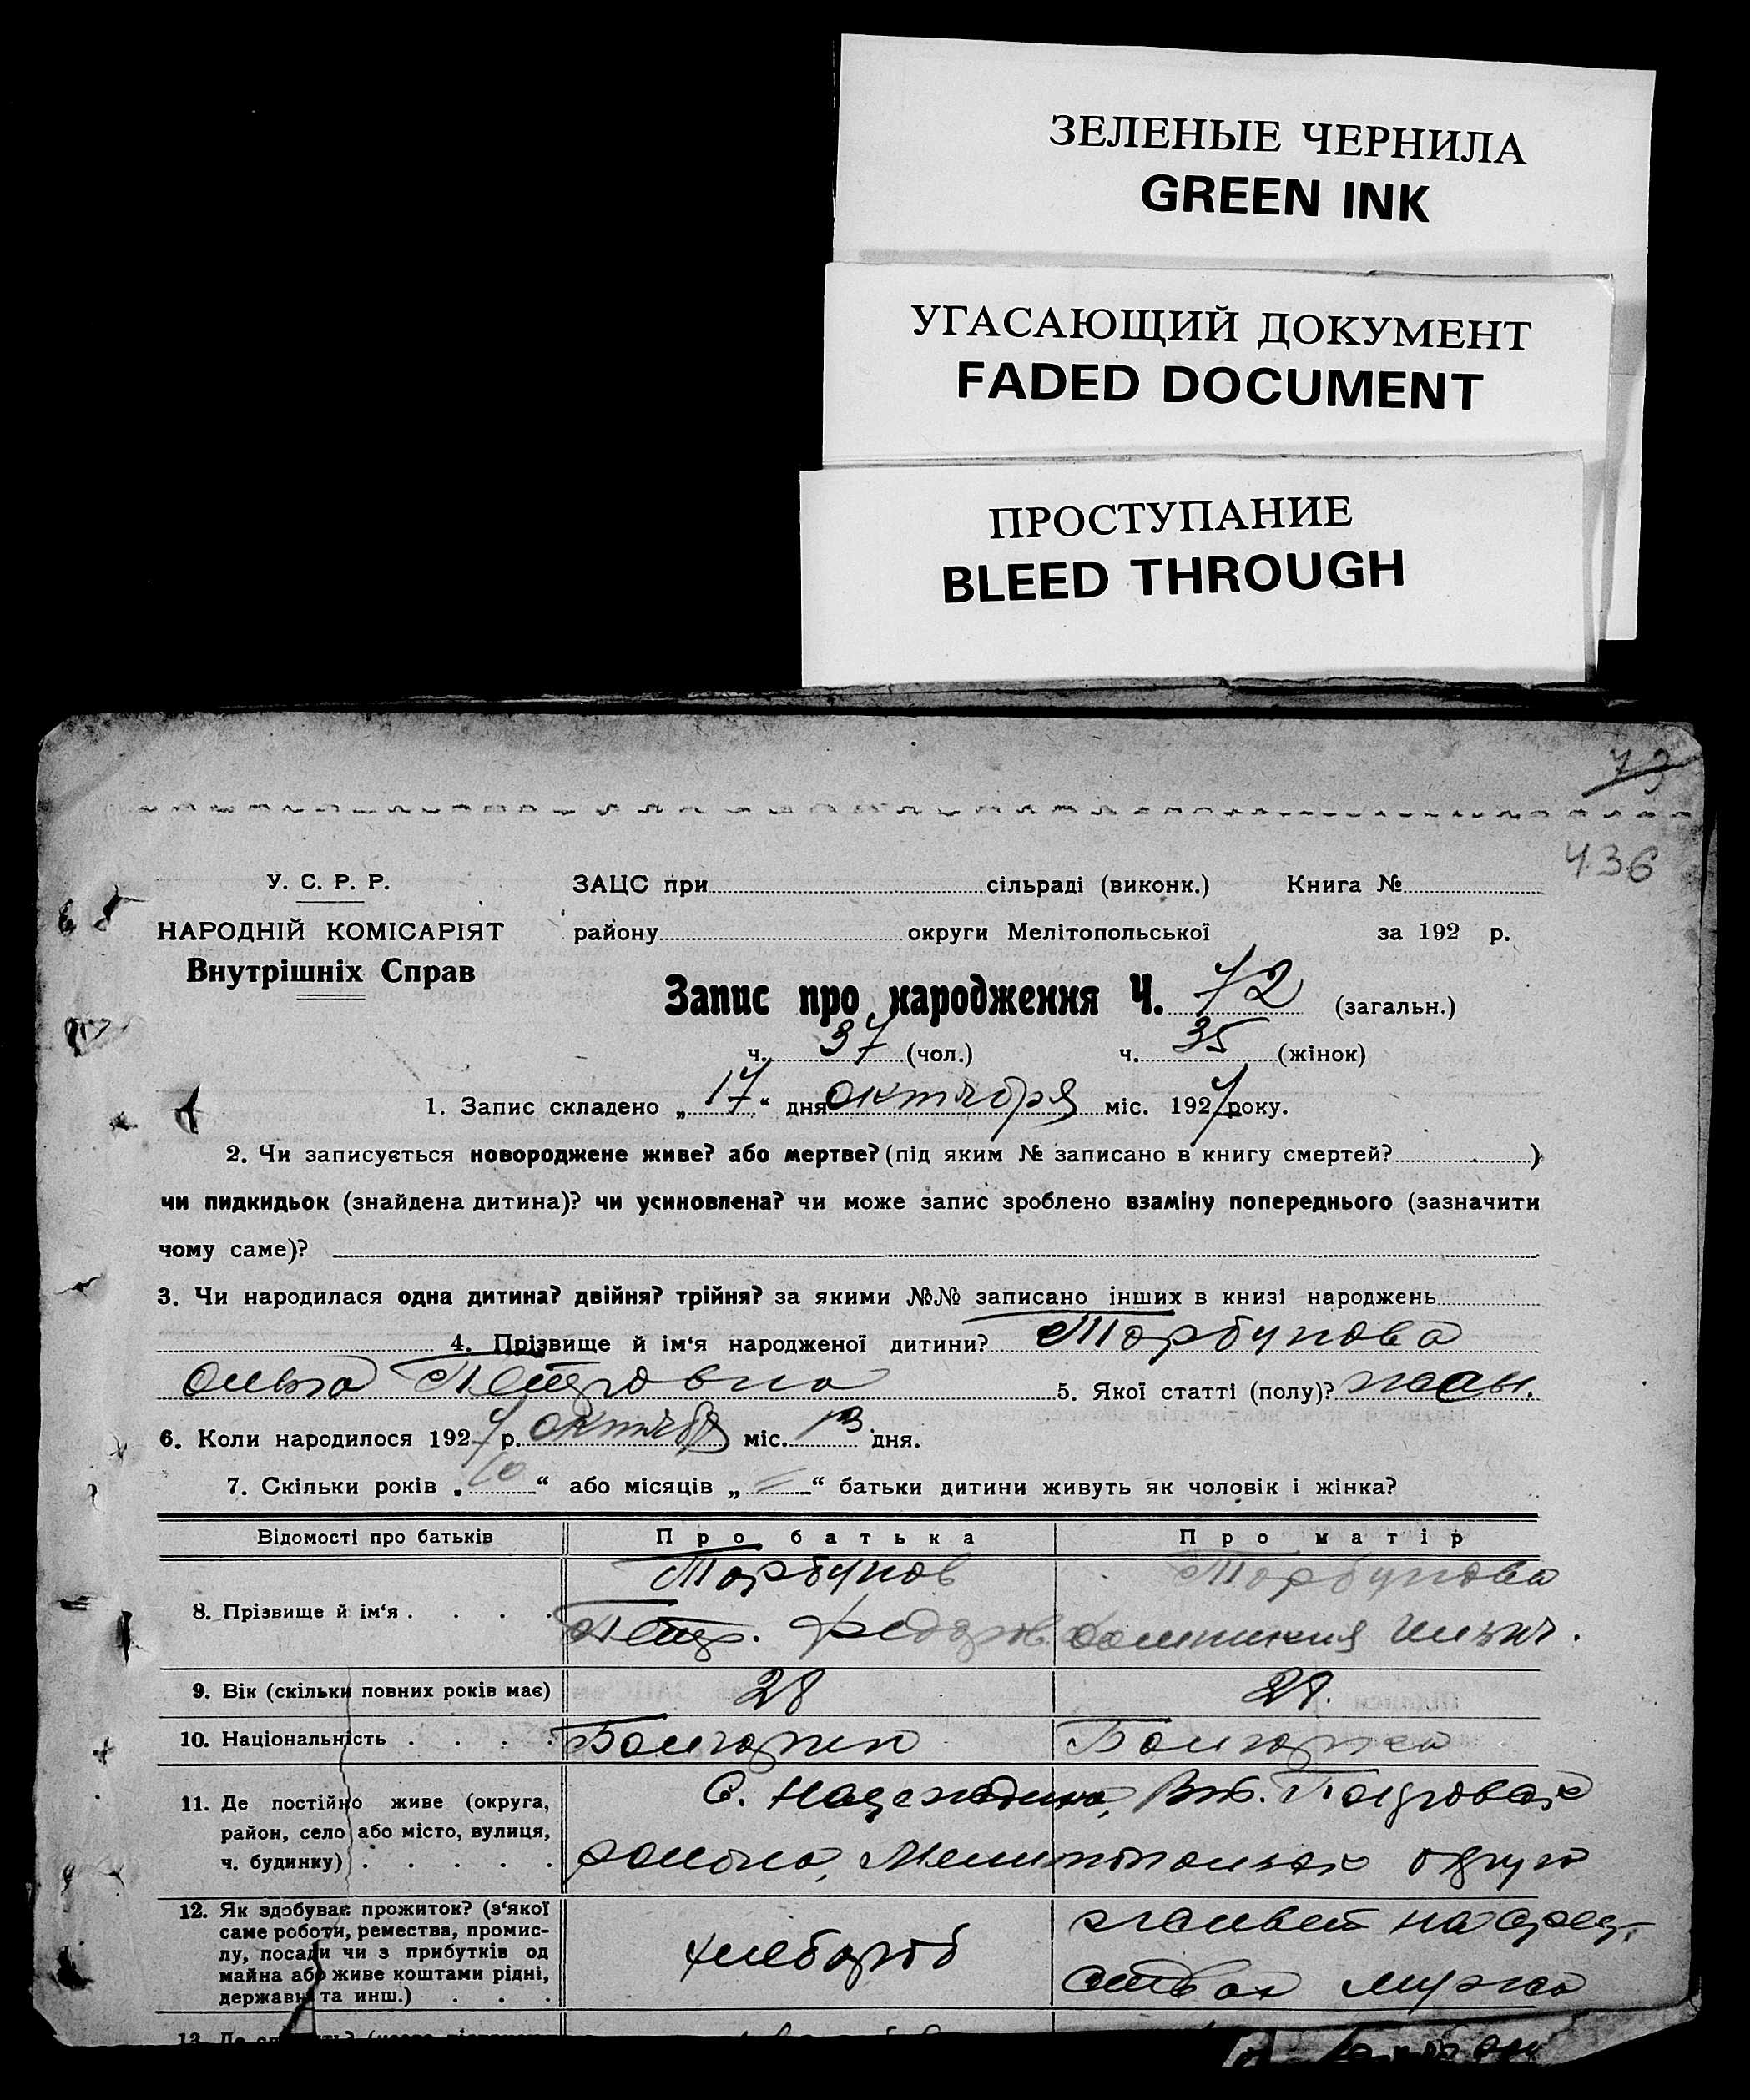 ЗЕЛЕНЫЕ ЧЕРНИЛА
GREEN INK
УГАСАЮЩИЙ ДОКУМЕНТ
FADED DOCUMENT
ПРОСТУПАНИЕ
BLEED THROUGH
73
436
У. С. Р. Р.
НАРОДНІЙ КОМІСАРІЯТ
Внутрішніх Справ
ЗАЦС при сільраді (виконк.) Книга №
району округи Мелітопольської за 192 р.
Запис про народження Ч. 72 (загальн.)
ч. 37 (чол.) ч. 35 (жінок)
1. Запис складено „17“ дня октября міс. 1927 року.
2. Чи записується новороджене живе? або мертве? (під яким № записано в книгу смертей? )
чи пидкидьок (знайдена дитина)? чи усиновлена? чи може запис зроблено взаміну попереднього (зазначити
чому саме)?
3. Чи народилася одна дитина? двійня? трійня? за якими №№ записано інших в книзі народжень
4. Прізвище й ім‘я народженої дитини? Торбунова
Ольга Петровна 5. Якої статті (полу)?
6. Коли народилося 1927 р. октября міс. 13 дня.
7. Скільки років „10“ або місяців „ “ батьки дитини живуть як чоловік і жінка?
Відомості про батьків Про батька Про матір
8. Прізвище й ім‘я . . . . Торбунов Торбунова
Петр. Федоров.
9. Вік (скільки повних років має) 28 28.
10. Національність . . . . Болгарин Болгарка
11. Де постійно живе (округа,
район, село або місто, вулиця,
ч. будинку) . . . . .
С. Надеждино,
района, Мелитопольск округа
12. Як здобуває прожиток? (з‘якої
саме роботи, ремества, промис-
лу, посади чи з прибутків од
майна або живе коштами рідні,
держави та инш.) . . .
хлебороб
на сред-
ствах мужа
13.